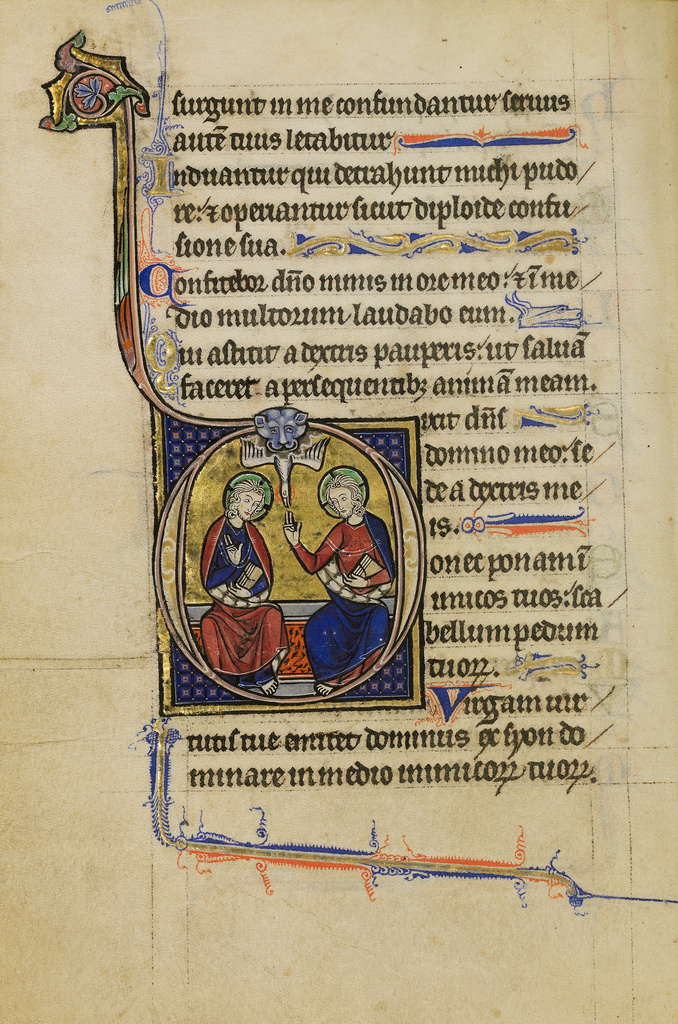 surgunt in me confundantur seruus
autē tuus letabitur
Induantur qui detrahunt michi pudo/
re: ⁊ operiantur sicut diploide confu/
sione sua.
Confitebor dño nimis in ore meo: ⁊ ī me/
dio multorum laudabo eum.
Qui astitit a dextris pauperis: ut saluā
faceret a persequentibꝫ animā meam.
Dixit dñs
domino meo: se/
de a dextris me/
is.
Donec ponam ī
imicos tuos: sca
bellum pedum
tuoꝝ.
Virgam uir/
tutis tue emittet dominus ex syon do/
minare in medio inimicoꝝ tuoꝝ.